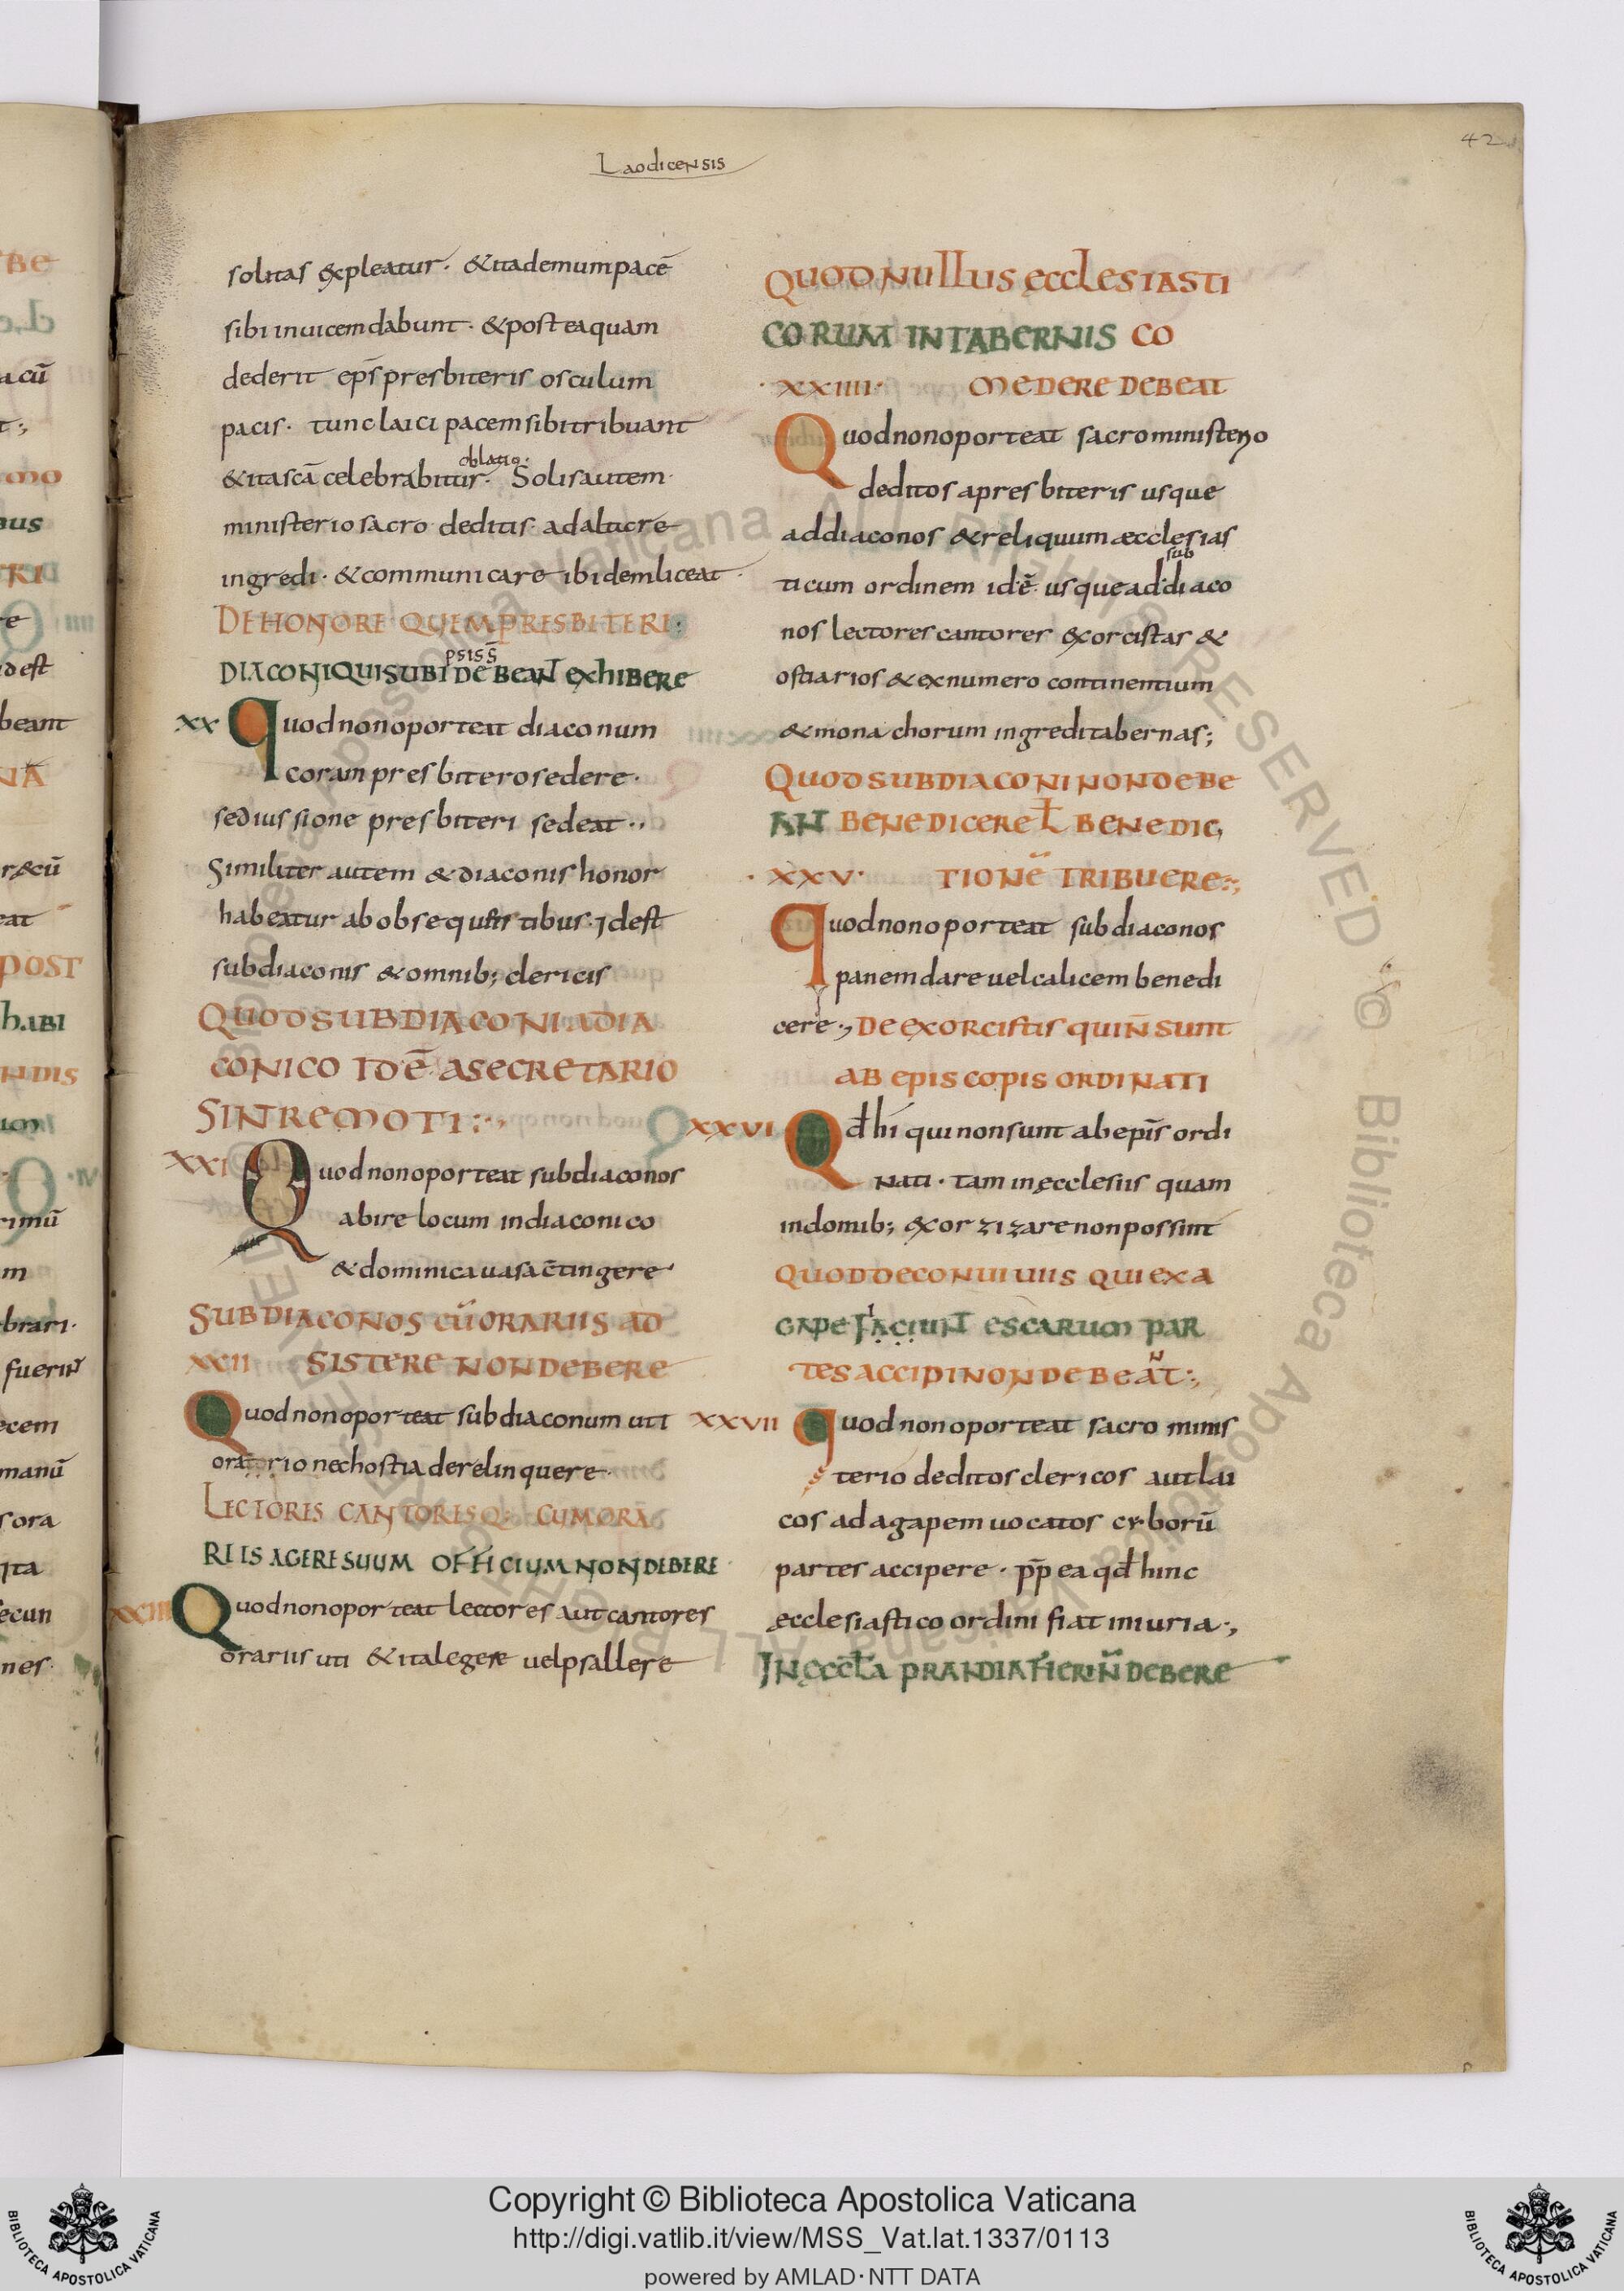 42
Laodicensis
solitas expleatur. & ita demum pacē
sibi inuicem dabunt. & postea quam
dederit ep̄s presbiteris osculum
pacis. tunc laici pacem sibi tribuant
oblatio.
& ita scā celebrabitur. Solis autem
ministerio sacro deditis ad altare
ingredi. & communicare ibidem liceat.
DE HONORE QUEM PRESBITERI:
psis s̄
DIACONI QUI SUBIDE BEANT EXHIBERE
xx quod non oporteat diaconum
coram presbitero sedere.
sed iussione presbiteri sedeat.,
Similiter autem & diaconis honor
habeatur ab obsequentibus. id est
subdiaconis & omnib; clericis
QUOD SUBDIACONI A DIA
CONICO ID Ē A SECRETARIO
SINT REMOTI:
XXI Quod non oporteat subdiaconos
abire locum in diaconico
& dominica uasa c̄tingere
SUBDIACONOS CŪ ORARIIS AD
XXII SISTERE NON DEBERE
Quod non oporteat subdiaconum uti
oratorio nec hostia derelinquere.
LECTORIS CANTORISQ: CUM ORA
RIIS AGERE SUUM OFFICIUM NON DEBERE.
XXIII Quod non oporteat lectores aut cantores
orariis uti & ita legere uel psallere
QUOD NULLUS ECCLESIASTI
CORUM IN TABERNIS CO
.XXIIII. MEDERE DEBEAT
Quod non oporteat sacro ministerio
deditos a presbiteris usque
ad diaconos & reliquum æcclesias
sub
ticum ordinem id ē usque ad diaco
nos lectores cantores exorcistas &
ostiarios & ex numero continentium
& monachorum ingredi tabernas;
QUOD SUBDIACONI NON DEBE
ANT BENEDICERE Ł BENEDIC,
.XXV. TIONĒ TRIBUERE:,
quod non oporteat subdiaconos
panem dare uel calicem benedi
cere., DE EXORCISTIS QUI N̄ SUNT
AB EPISCOPIS ORDINATI
XXVI Qđ hi qui non sunt ab ep̄is ordi
nati. tam in ęcclesiis quam
in domib; exorzizare non possint
QUOD DE CONUIUIIS QUI EX A
GAPE FACIUNT ESCARUM PAR
TES ACCIPI NON DEBEAT:,
XXVII quod non oporteat sacro minis
terio deditos clericos aut lai
cos ad agapem uocatos cyborū
partes accipere. pp̄ ea qđ hinc
ęcclesiastico ordini fiat iniuria.,
IN ECCŁA PRANDIA FIERI N̄ DEBERE
Copyright © Biblioteca Apostolica Vaticana
http://digi.vatlib.it/view/MSS_Vat.lat.1337/0113
powered by AMLAD·NTT DATA
BIBLIOTECA APOSTOLICA VATICANA
BIBLIOTECA APOSTOLICA VATICANA